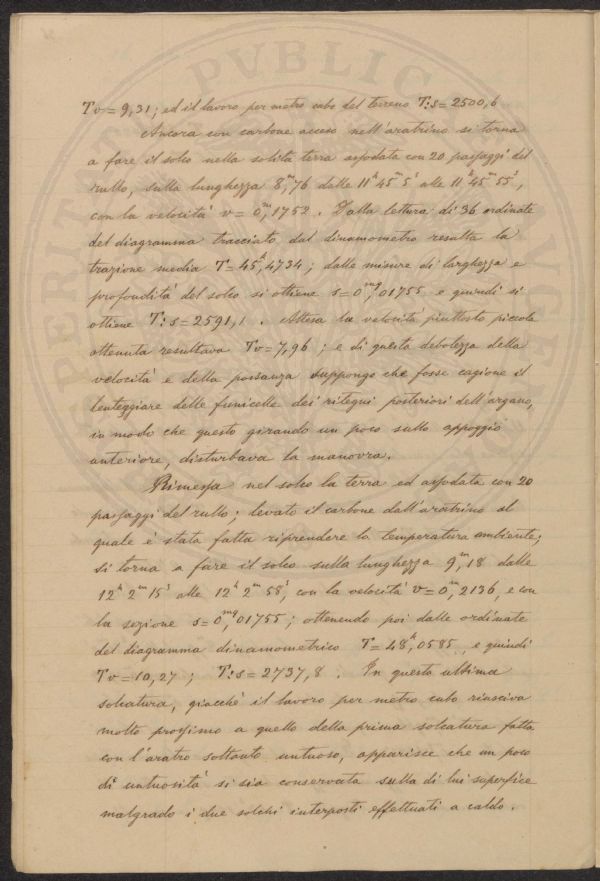 Tv = 9,31; ed il lavoro per metro cubo del terreno T:s = 2500,6
Ancora con carbone acceso nell'aratrino si torna
a fare il solco nella solita terra assodata con 20 passaggi del
rullo, sulla lunghezza 8,ᵐ76 dalle 11ʰ 45ᵐ 5ˢ alle 11ʰ 45ᵐ 55ˢ,
con la velocità v = 0,ᵐ1752. Dalla lettura di 36 ordinate
del diagramma tracciato dal dinamometro resulta la
trazione media T = 45,ᵏ4734; dalle misure di larghezza e
profondità del solco si ottiene s = 0,ᵐq01755 e quindi si
ottiene T:s = 2591,1. Attesa la velocità piuttosto piccola
ottenuta resultava Tv = 7,96; e di questa debolezza della
velocità e della possanza suppongo che fosse cagione il
lenteggiare delle funicelle dei ritegni posteriori dell'argano,
in modo che questo girando un poco sullo appoggio
anteriore, disturbava la manovra.
Rimessa nel solco la terra ed assodata con 20
passaggi del rullo; levato il carbone dall'aratrino al
quale è stata fatta riprendere la temperatura ambiente;
si torna a fare il solco sulla lunghezza 9,ᵐ18 dalle
12ʰ 2ᵐ 15ˢ alle 12ʰ 2ᵐ 58ˢ, con la velocità v = 0,ᵐ2136, e con
la sezione s = 0,ᵐq01755; ottenendo poi dalle ordinate
del diagramma dinamometrico T = 48,ᵏ0585, e quindi
Tv = 10,27; T:s = 2737,8. In questa ultima
solcatura, giacchè il lavoro per metro cubo riusciva
molto prossimo a quello della prima solcatura fatta
con l'aratro soltanto untuoso, apparisce che un poco
di untuosità si sia conservata sulla di lui superfice
malgrado i due solchi interposti effettuati a caldo.